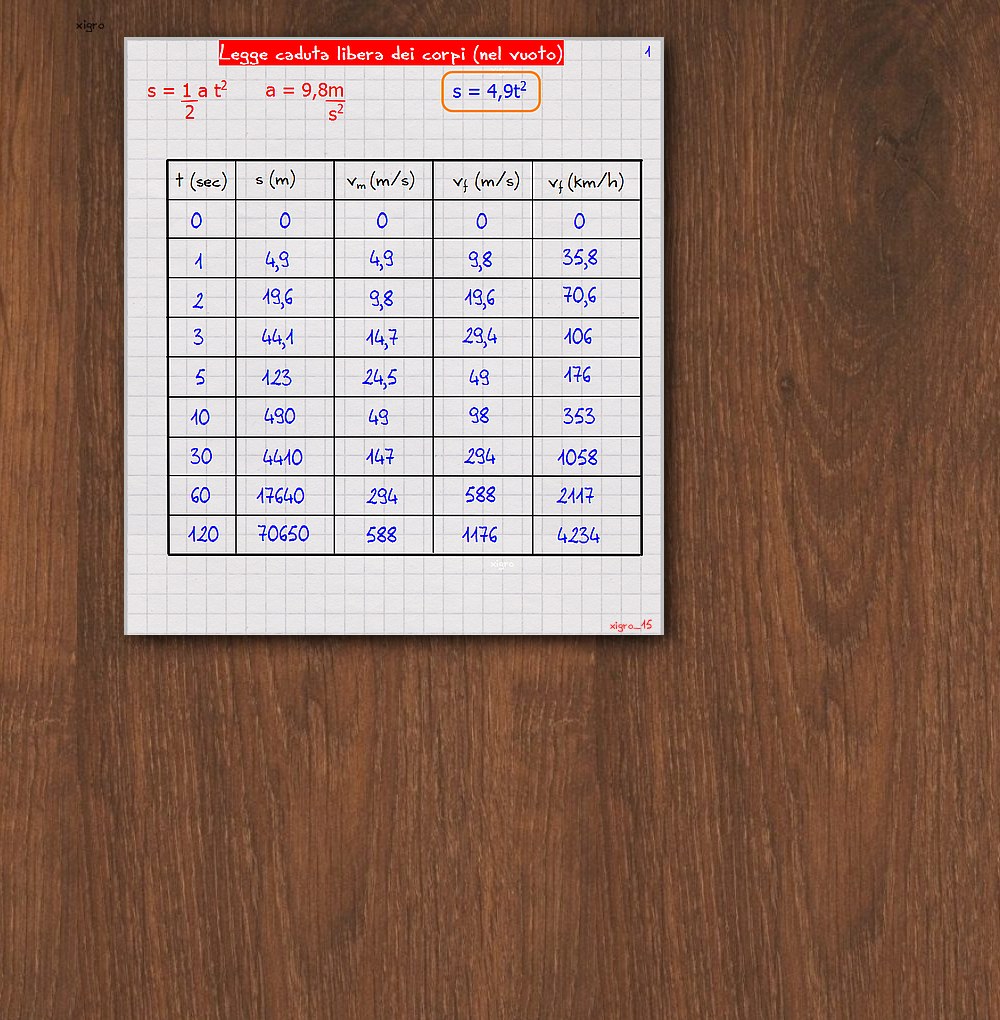 xigro
Legge caduta libera dei corpi (nel vuoto) 1
s = 1/2 a t² a = 9,8 m/s² s = 4,9t²
t (sec) s (m) vₘ (m/s) v_f (m/s) v_f (km/h)
0 0 0 0 0
1 4,9 4,9 9,8 35,8
2 19,6 9,8 19,6 70,6
3 44,1 14,7 29,4 106
5 123 24,5 49 176
10 490 49 98 353
30 4410 147 294 1058
60 17640 294 588 2117
120 70650 588 1176 4234
xigro
xigro_15